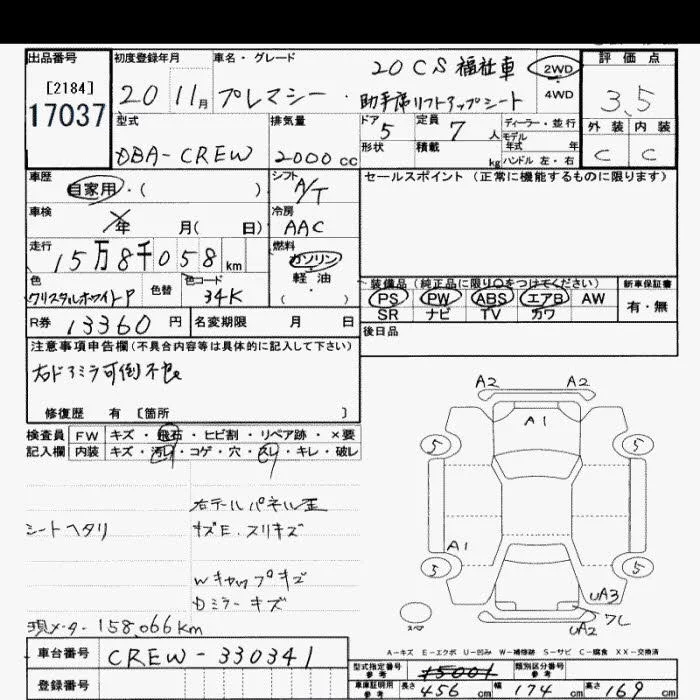 出品番号
[2184]
17037
初度登録年月
20 11月
車名・グレード
プレマシー・
20CS 福祉車
助手席リフトアップシート
2WD
4WD
評価点
3.5
外装 内装
C C
型式
DBA-CREW
排気量
2000 cc
ドア
5
定員
7 人
ディーラー・並行
モデル
年式 年
形状
積載
kg
ハンドル 左・右
車歴
自家用・( )
シフト
A/T
セールスポイント (正常に機能するものに限ります)
車検
年 月( 日)
冷房
AAC
走行
15万8千058 km
燃料
ガソリン
軽・油
( ・ )
色
クリスタルホワイトP
色替
色コード
34K
装備品 (純正品に限り○をつけてください)
PS PW ABS エアB AW
SR ナビ TV カワ
新車保証書
有・無
R券 13360 円
名変期限 月 日
後日品
注意事項申告欄 (不具合内容等は具体的に記入して下さい)
右ドアミラ可倒不良
修復歴 有 [箇所 ]
検査員
記入欄
FW キズ・飛石・ヒビ割・リペア跡・×要
内装 キズ・汚レ・コゲ・穴・スレ・キレ・破レ
右テールパネル歪
シートヘタリ
キズE、スリキズ
Wキャップキズ
Dミラーキズ
現メーター158,066km
A2 A2
A1
5 5
A1
5 5
UA3
ワレ
UA2
スペア
A-キズ E-エクボ U-凹み W-補修跡 S-サビ C-腐食 XX-交換済
車台番号
CREW-330341
登録番号
型式指定番号
参考
15001
類別区分番号
参考
車庫証明用
参考
長さ 456 cm 幅 174 cm 高さ 169 cm